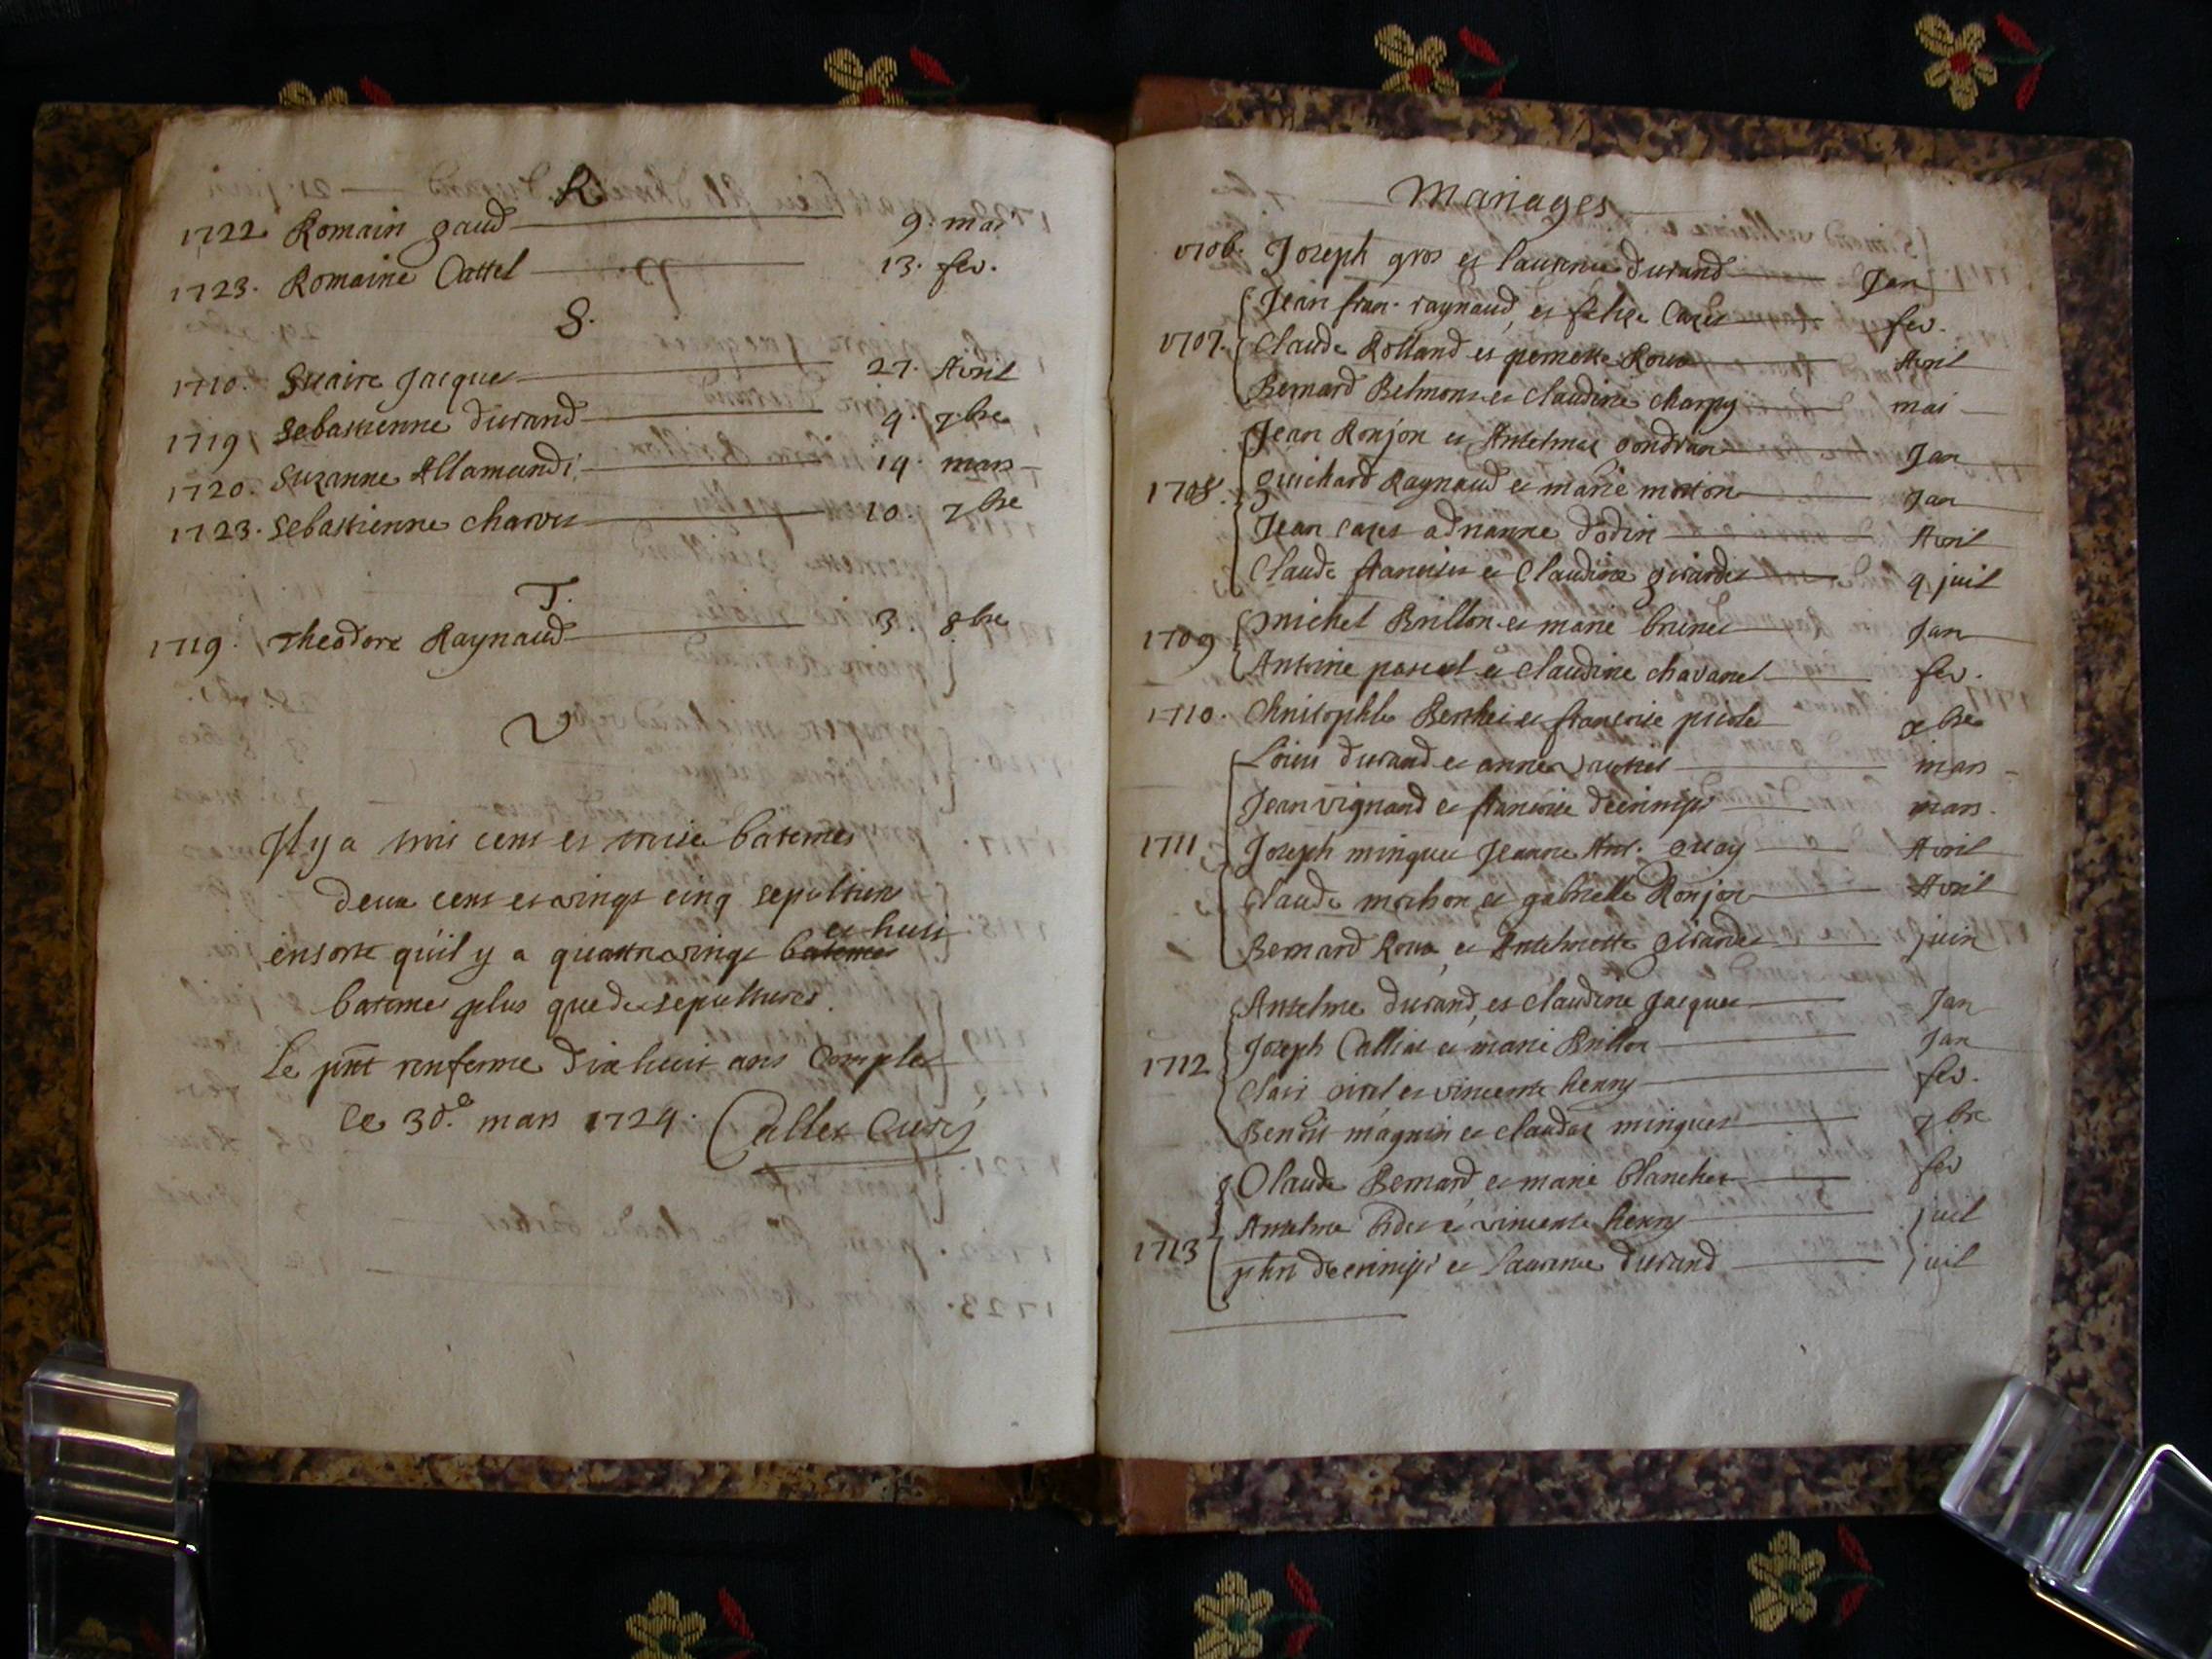 R
1722. Romain gaud 9. mai
1723. Romaine Cattel 13. fev.
S.
1710. Suaire Jacquet 27. Avril
1719 Sebastienne durand 4. 7bre
1720. Suzanne Allamandi 14. mars
1723. Sebastienne charvet 10. 7bre
T.
1719. Theodore Raynaud 3. 8bre
V
Il y a trois cent et treise batemes
deux cent et vingt cinq sepultures
et huit
ensorte qu'il y a quattrevingt batemes
bateme plus que de sepultures.
Le pnt renferme dix huit ans Complet
ce 30.e mars 1724. Callet Curé
Mariages
1706. Joseph gros et laurence durand Jan
Jean fran. raynaud, et felize Cazet fev.
1707. Claude Rolland et pernette Roux Avril
Bernard Belmont et claudine charpy mai
Jean Ronjon et Antelmaz gondran Jan
1708. guichard Raynaud et marie morton Jan
Jean Cazet adrianne dodin Avril
Claude et Claudine girardet 4 juil
1709 michel Brillon et marie brunet Jan
Antoine pascal et claudine chavanel fev.
1710. Christophle Berthet et francoise xbre
Louis durand et anne mars
Jean vignand et francoise decrimpt mars.
1711 Joseph minguet Jeanne Ant. guay Avril
Claude mochon et gabrielle Ronjon Avril
Bernard Roux, et Antelmette girardet juin
Antelme durand, et claudine Jacquet Jan
1712 Joseph Calliat et marie Brillon Jan
Clair vial et vincente henry fev.
Benoit magnin et claudaz minguet 7bre
Claude Bernard, et marie blanchet fev
Antelme bidet et vincente henry juil
1713 decrimpt et laurence durand juil